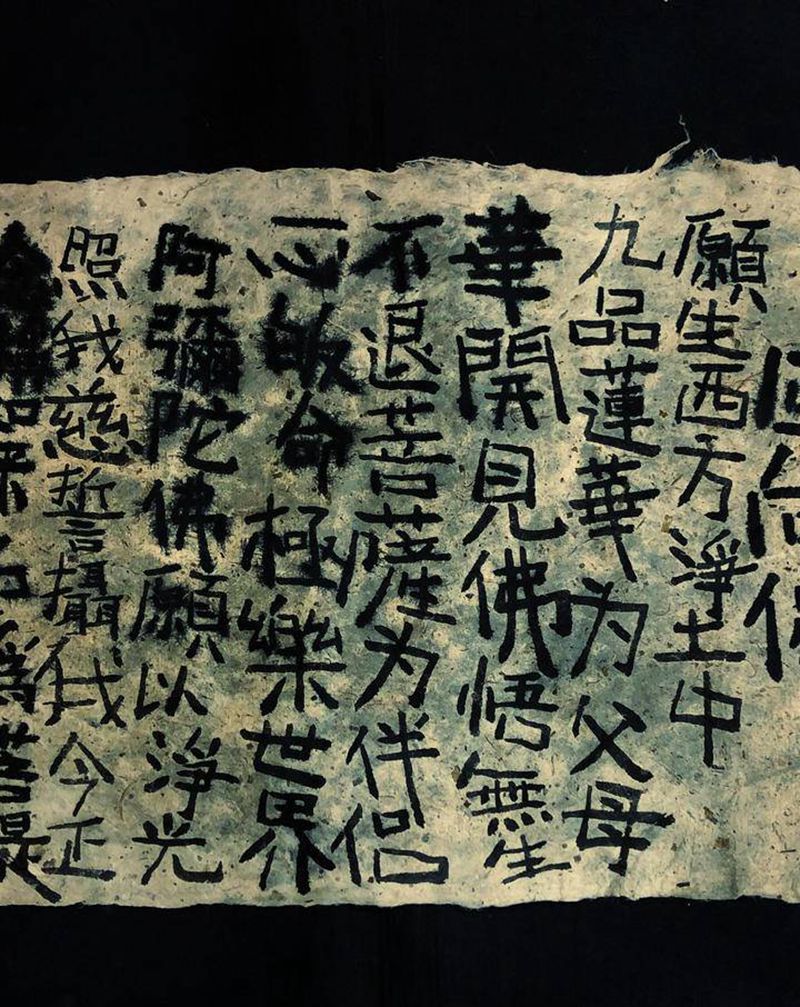 願生西方淨土中
九品蓮華为父母
華開見佛悟無生
不退菩薩为伴侣
一心皈命極樂世界
阿彌陀佛願以淨光
照我慈誓攝我今正
如來名為菩提